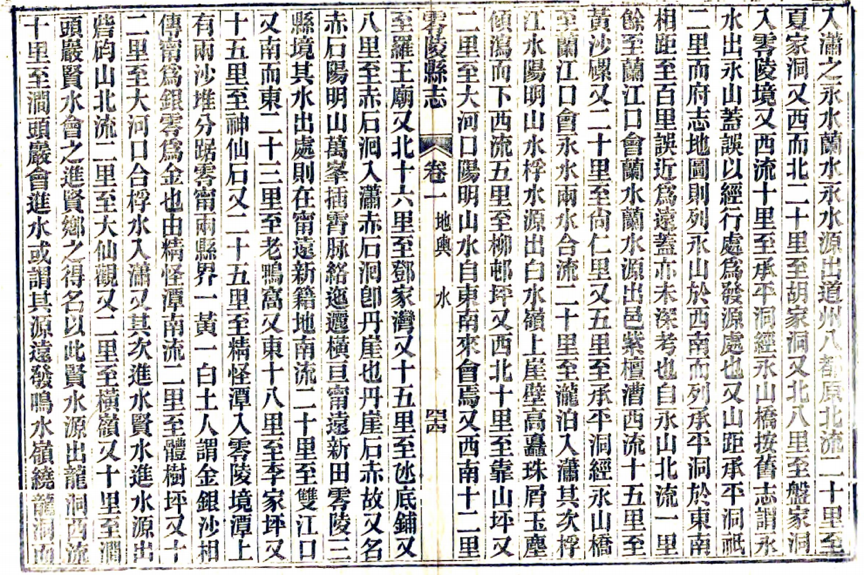 入瀟之永水蘭水永水源出道州八都原北流二十里至
夏家洞又西而北二十里至胡家洞又北八里至盤家洞
入零陵境又西流十里至承平洞經永山橋按舊志謂永
水出永山蓋誤以經行處爲發源處也又山距承平洞祗
二里而府志地圖則列永山於西南而列承平洞於東南
相距至百里誤近爲遠蓋亦未深考也自永山北流一里
餘至蘭江口會蘭水蘭水源出邑紫檀漕西流十五里至
黃沙磥又二十里至尙仁里又五里至承平洞經永山橋
至蘭江口會永水兩水合流二十里至瀧泊入瀟其次桴
江水陽明山水桴水源出白水嶺上崖壁高矗珠屑玉塵
傾瀉而下西流五里至柳邨坪又西北十里至靠山坪又
二里至大河口陽明山水自東南來會焉又西南十二里
零陵縣志
卷一 地輿 水
至羅王廟又北十六里至鄧家灣又十五里至氹底鋪又
八里至赤石洞入瀟赤石洞卽丹崖也丹崖石赤故又名
赤石陽明山萬峯插霄脉絡迤邐橫亘甯遠新田零陵三
縣境其水出處則在甯遠新籍地南流二十里至雙江口
又南而東二十三里至老鴨窩又東十八里至李家坪又
十五里至神仙石又二十五里至精怪潭入零陵境潭上
有兩沙堆分踞零甯兩縣界一黃一白土人謂金銀沙相
傳甯爲銀零爲金也由精怪潭南流二里至體樹坪又十
二里至大河口合桴水入瀟又其次進水賢水進水源出
砦䂬山北流二里至大仙觀又二里至橫嶺又十里至澗
頭巖賢水會之進賢鄉之得名以此賢水源出龍洞西流
十里至澗頭巖會進水或謂其源遠發鳴水嶺繞龍洞而